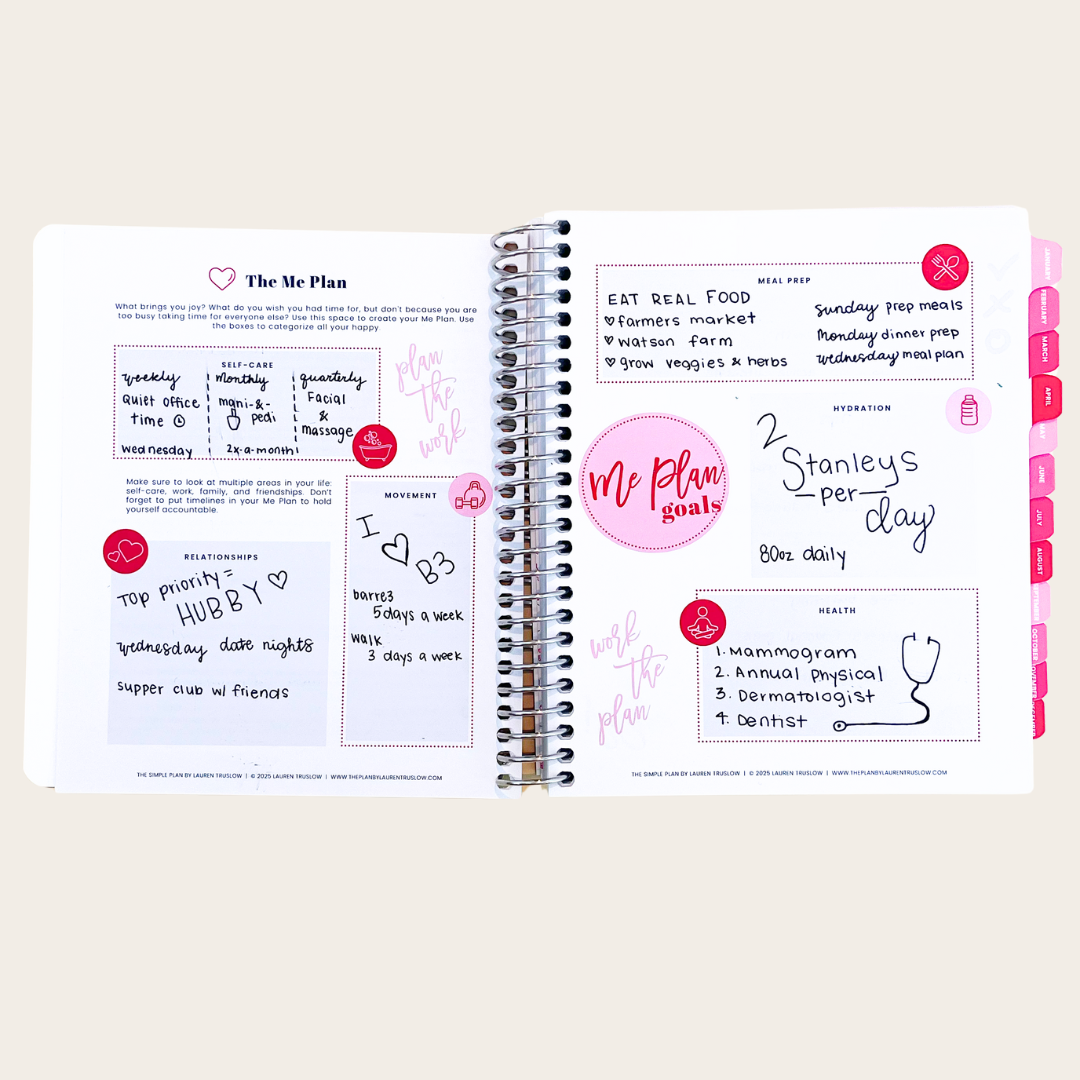 The Me Plan
What brings you joy? What do you wish you had time for, but don't because you are
too busy taking time for everyone else? Use this space to create your Me Plan. Use
the boxes to categorize all your happy.
SELF-CARE
weekly
Quiet office
time
wednesday
monthly
mani-&-
pedi
2x-a-month
quarterly
Facial
&
massage
plan
the
work
Make sure to look at multiple areas in your life:
self-care, work, family, and friendships. Don't
forget to put timelines in your Me Plan to hold
yourself accountable.
RELATIONSHIPS
TOP priority =
HUBBY ♡
wednesday date nights
supper club w/ friends
MOVEMENT
I
♡
B3
barre3
5 days a week
walk
3 days a week
THE SIMPLE PLAN BY LAUREN TRUSLOW | © 2025 LAUREN TRUSLOW | WWW.THEPLANBYLAURENTRUSLOW.COM
MEAL PREP
EAT REAL FOOD
♡ farmers market
♡ watson farm
♡ grow veggies & herbs
sunday prep meals
Monday dinner prep
wednesday meal plan
Me Plan
goals
HYDRATION
2
Stanleys
-per-
day
80oz daily
work
the
plan
HEALTH
1. Mammogram
2. Annual Physical
3. Dermatologist
4. Dentist
THE SIMPLE PLAN BY LAUREN TRUSLOW | © 2025 LAUREN TRUSLOW | WWW.THEPLANBYLAURENTRUSLOW.COM
JANUARY
FEBRUARY
MARCH
APRIL
MAY
JUNE
JULY
AUGUST
SEPTEMBER
OCTOBER